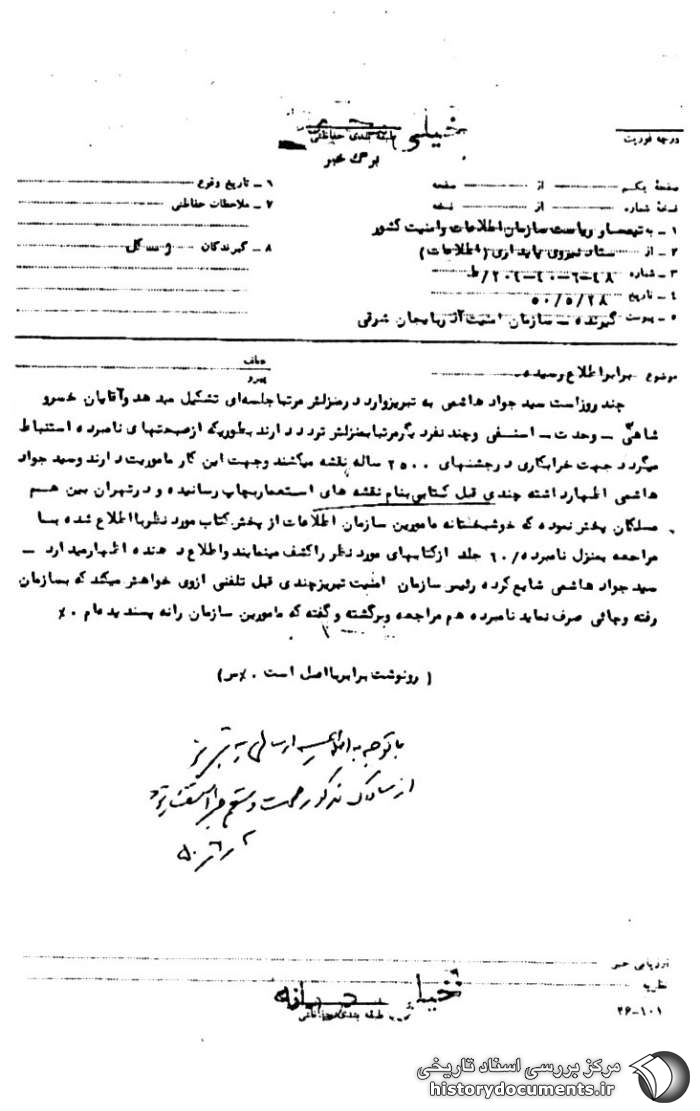 خیلی محرمانه
طبقه بندی حفاظتی
برگ خبر
درجه فوریت
صفحه یکم از صفحه
نسخه شماره از نسخه
۱ – به تیمسار ریاست سازمان اطلاعات و امنیت کشور
۲ – از ستاد نیروی پایداری (اطلاعات)
۳ – شماره
۴ – تاریخ ۵۰/۵/۲۸
۵ – پیوست گیرنده – سازمان امنیت آذربایجان شرقی
۶ – تاریخ وقوع
۷ – ملاحظات حفاظتی
۸ – گیرندگان
موضوع برابر اطلاع رسیده
عطف
پیرو
چند روزاست سید جواد هاشمی به تبریزوارد درمنزلش مرتبا جلسه‌ای تشکیل میدهد وآقایان خسرو
شاهی – وحدت – اسنفی وچند نفردیگرمرتبا بمنزلش تردد دارند بطوریکه ازصحبتهای نامبرده استنباط
میگردد جهت خرابکاری درجشنهای ۲۵۰۰ ساله نقشه میکشند وجهت این کار ماموریت دارند وسید جواد
هاشمی اظهارداشته چندی قبل کتابی بنام نقشه های استعماربچاپ رسانیده و درتهران بین هم
مسلکان پخش نموده که خوشبختانه مامورین سازمان اطلاعات از پخش کتاب مورد نظربا اطلاع شده بـا
مراجعه بمنزل نامبرده ۶۰/ جلد ازکتابهای مورد نظر راکشف مینمایند واطلاع دهنده اظهارمیدارد –
سید جواد هاشمی شایع کرده رئیس سازمان امنیت تبریزچندی قبل تلفنی ازوی خواهش میکند که بسازمان
رفته وچائی صرف نماید نامبرده هم مراجعه وبرگشته و گفته که مامورین سازمان رانه پسندیده‌ام ٪
( رونوشت برابربا اصل است ٪س)
با توجه به اطلاعیه ارسالی به تبریز
از ساواک
ارزیابی خبر
نظریه
خیلی محرمانه
طبقه بندی حفاظتی
۲۶–۱۰۱
مرکز بررسی اسناد تاریخی
historydocuments.ir